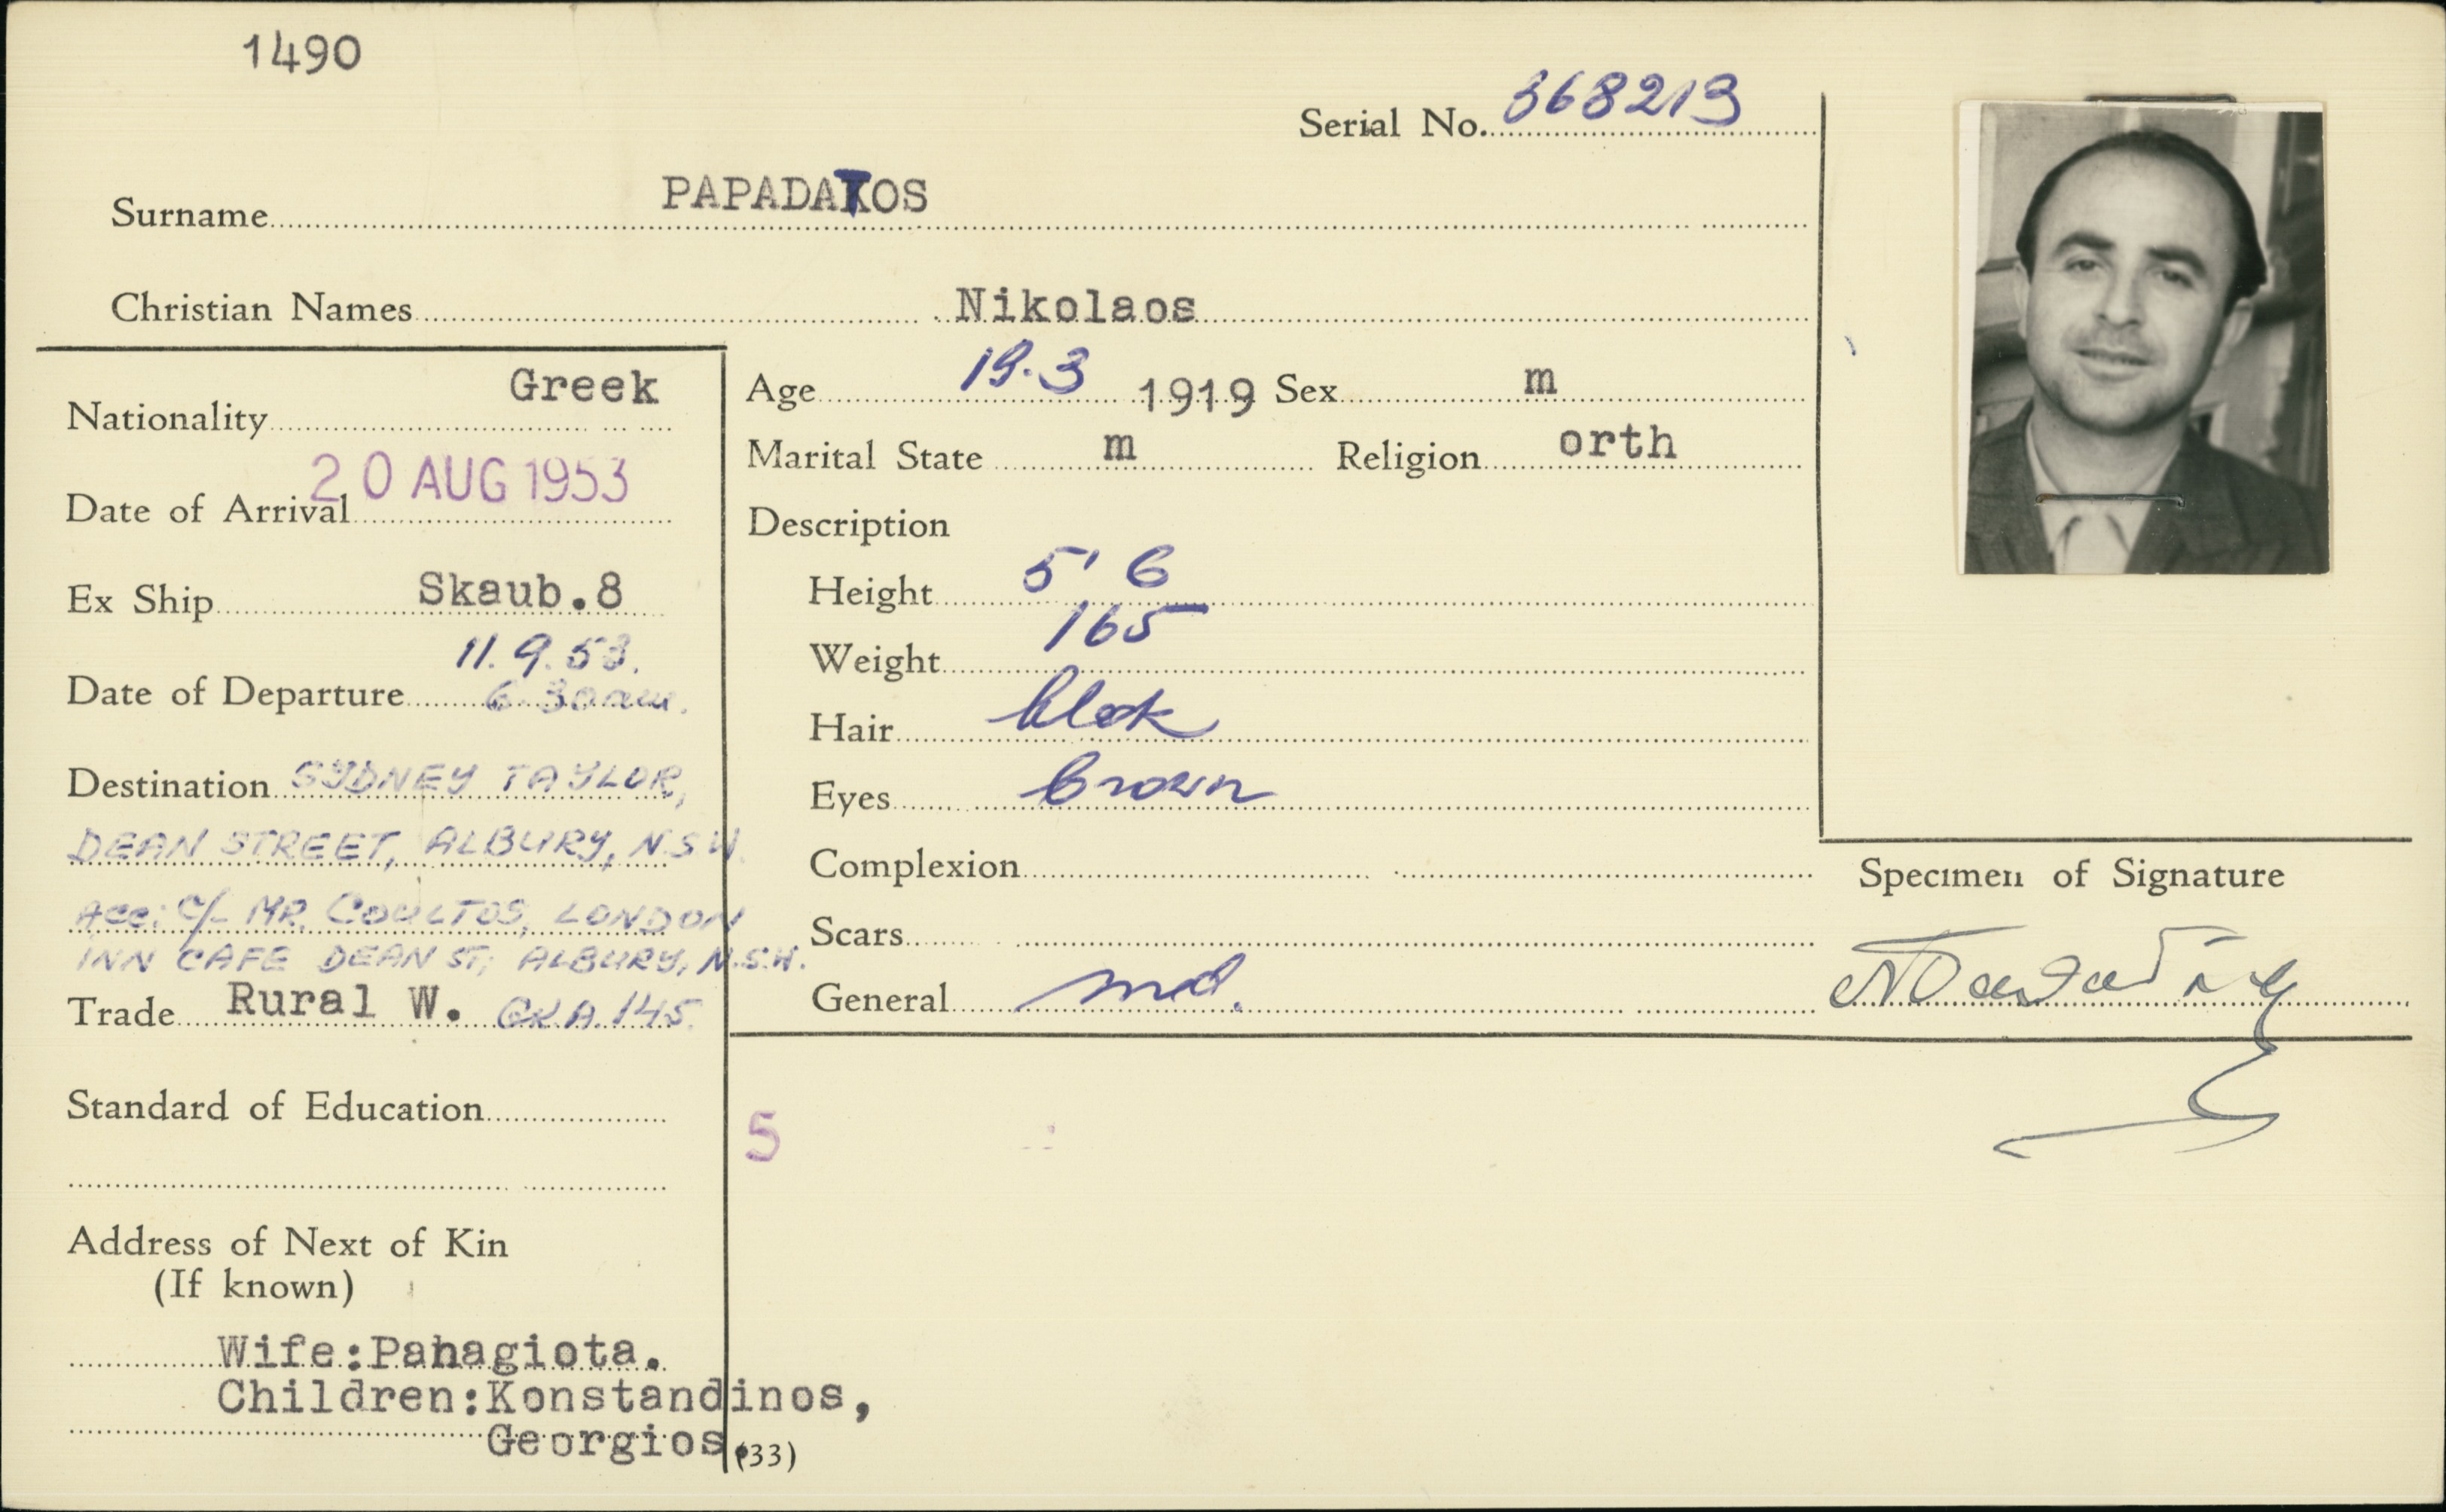 1490
Serial No. 368213
Surname PAPADATOS
Christian Names Nikolaos
Nationality Greek
Date of Arrival 20 AUG 1953
Ex Ship Skaub.8
11.9.53.
Date of Departure 6.30am.
Destination SYDNEY TAYLOR,
DEAN STREET, ALBURY, N.S.W.
Acc: C/- MR. COULTOS, LONDON
INN CAFE DEAN ST, ALBURY, N.S.W.
Trade Rural W. 145
Standard of Education
Address of Next of Kin
(If known)
Wife:Panagiota.
Children:Konstandinos,
Georgios.
(33)
Age 19.3 1919 Sex m
Marital State m Religion orth
Description
Height 5' 6
Weight 165
Hair black
Eyes brown
Complexion
Scars
General med.
5
Specimen of Signature